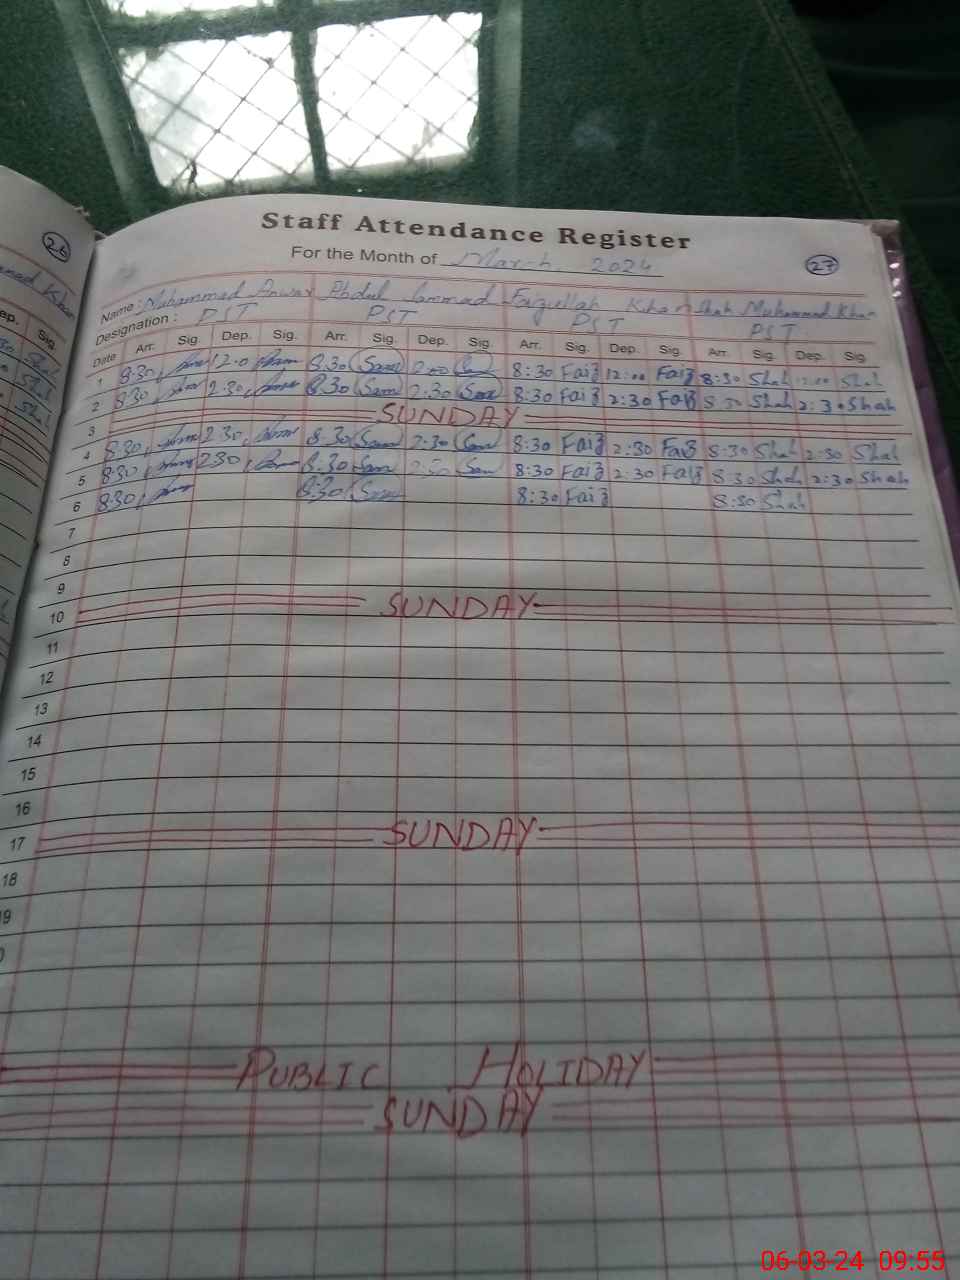 26
Staff Attendance Register
For the Month of March. 2024
27
Name: Muhammad Anwar Abdul Sammad Faizullah Khan Shah Muhammad Khan
Designation: PST PST PST PST
Date Arr. Sig. Dep. Sig. Arr. Sig. Dep. Sig. Arr. Sig. Dep. Sig. Arr. Sig. Dep. Sig.
1 8:30 12:0 8:30 Sam 8:30 Faiz 12:00 Faiz 8:30 Shah 12:00 Shah
2 8:30 2:30 8:30 Sam 2:30 Sam 8:30 Faiz 2:30 Faiz 8:30 Shah 2:30 Shah
3 SUNDAY
4 8:30 2:30 8:30 Sam 2:30 Sam 8:30 Faiz 2:30 Faiz 8:30 Shah 2:30 Shah
5 8:30 2:30 8:30 Sam 2:30 Sam 8:30 Faiz 2:30 Faiz 8:30 Shah 2:30 Shah
6 8:30 8:30 Sam 8:30 Faiz 8:30 Shah
7
8
9
10 SUNDAY
11
12
13
14
15
16
17 SUNDAY
18
9
PUBLIC HOLIDAY
SUNDAY
06-03-24 09:55